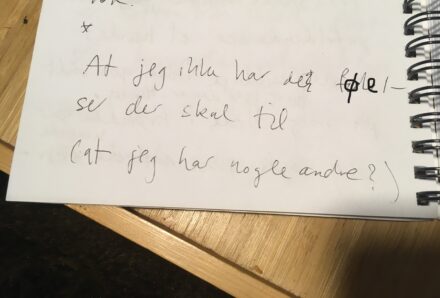 *
At jeg ikke har de føel-
ser der skal til
(at jeg har nogle andre?)